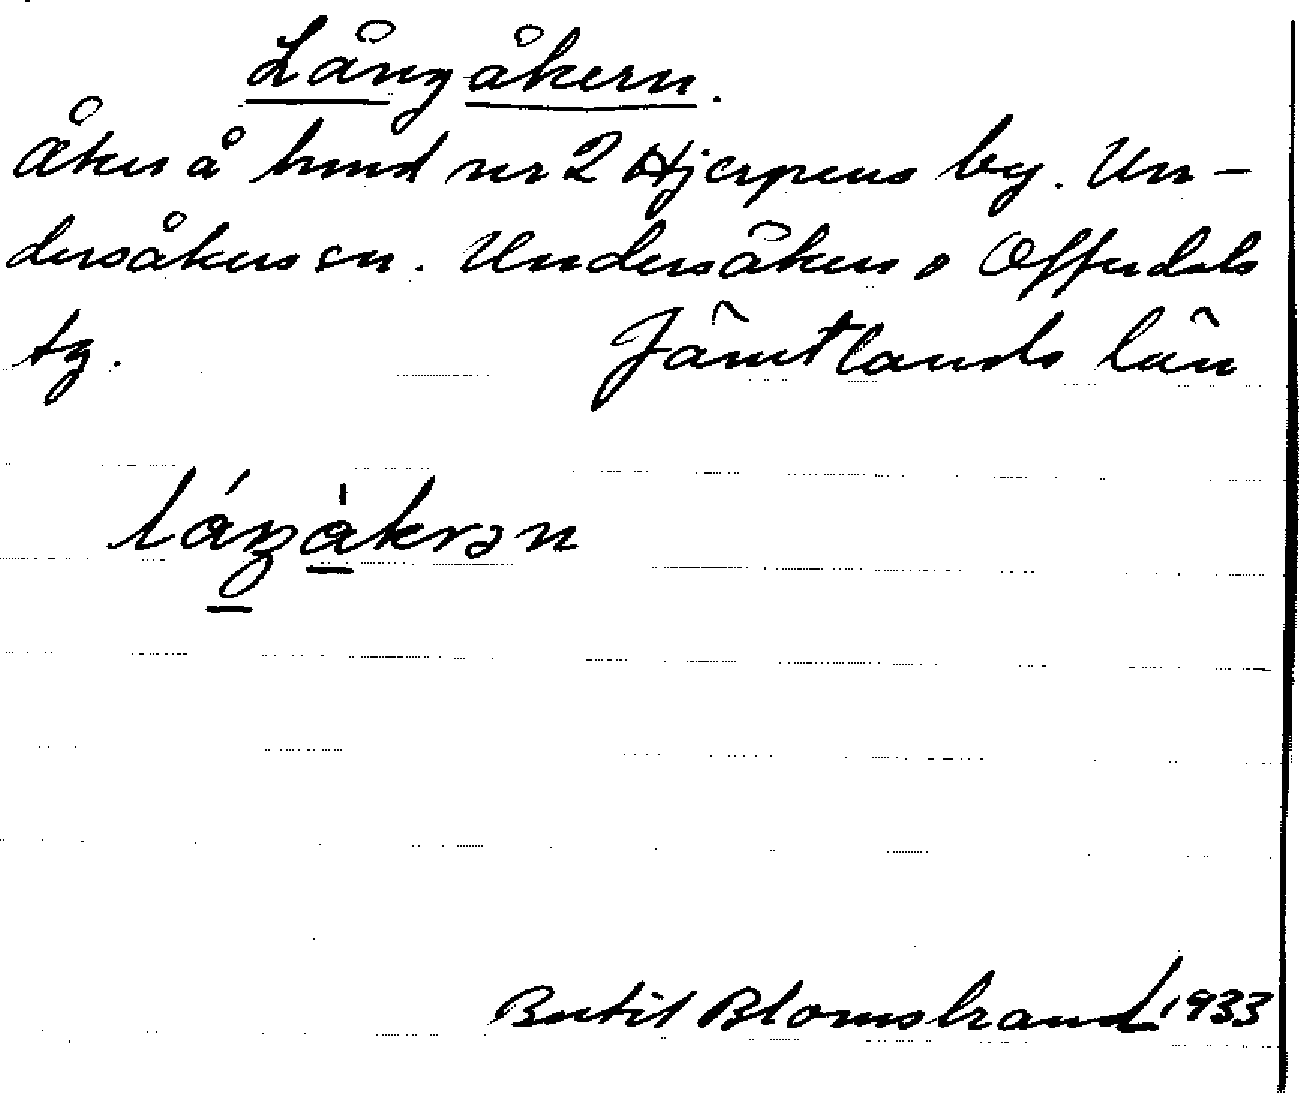 Långåkern.
Åker å hmd nr 2 Hjerpens by. Un-
dersåkers sn. Undersåkers o Offerdals
tg. Jämtlands län
láŋàkrən
Bertil Blomstrand 1933